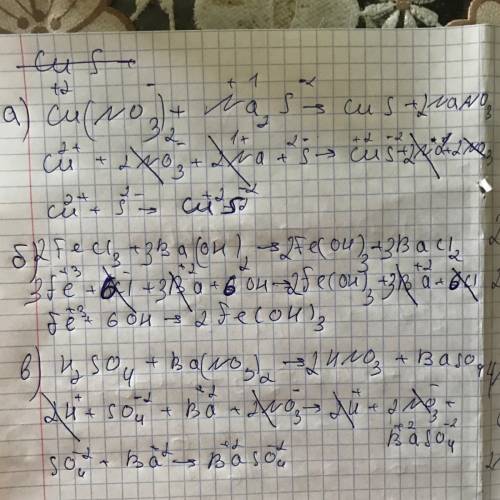 CuS
а) Cu(NO₃)₂ + Na₂S → CuS + 2NaNO₃
Cu²⁺ + 2NO₃⁻ + 2Na¹⁺ + S²⁻ → Cu⁺²S⁻² + 2Na⁺ + 2NO₃
Cu²⁺ + S²⁻ → Cu⁺²S⁻²
б) 2FeCl₃ + 3Ba(OH)₂ → 2Fe(OH)₃ + 3BaCl₂
3Fe⁺³ + 6Cl + 3Ba⁺² + 6OH → 2Fe(OH)₃ + 3Ba⁺² + 6Cl
Fe⁺³ + 6OH → 2Fe(OH)₃
в) H₂SO₄ + Ba(NO₃)₂ → 2HNO₃ + BaSO₄
2H⁺ + SO₄⁻² + Ba⁺² + 2NO₃⁻ → 2H⁺ + 2NO₃⁻ +
Ba⁺²SO₄⁻²
SO₄⁻² + Ba⁺² → Ba⁺²SO₄⁻²